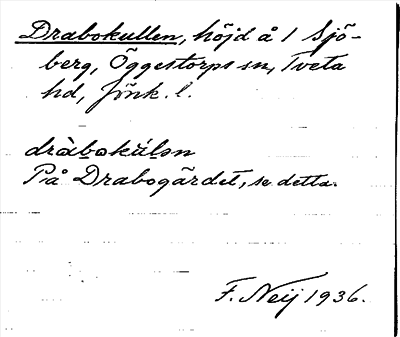 Drabokullen, höjd å 1 Sjö-
berg, Öggestorps sn, Tveta
hd, Jönk. l.
dràbokúlen
På Drabogärdet, se detta.
F. Neij 1936.